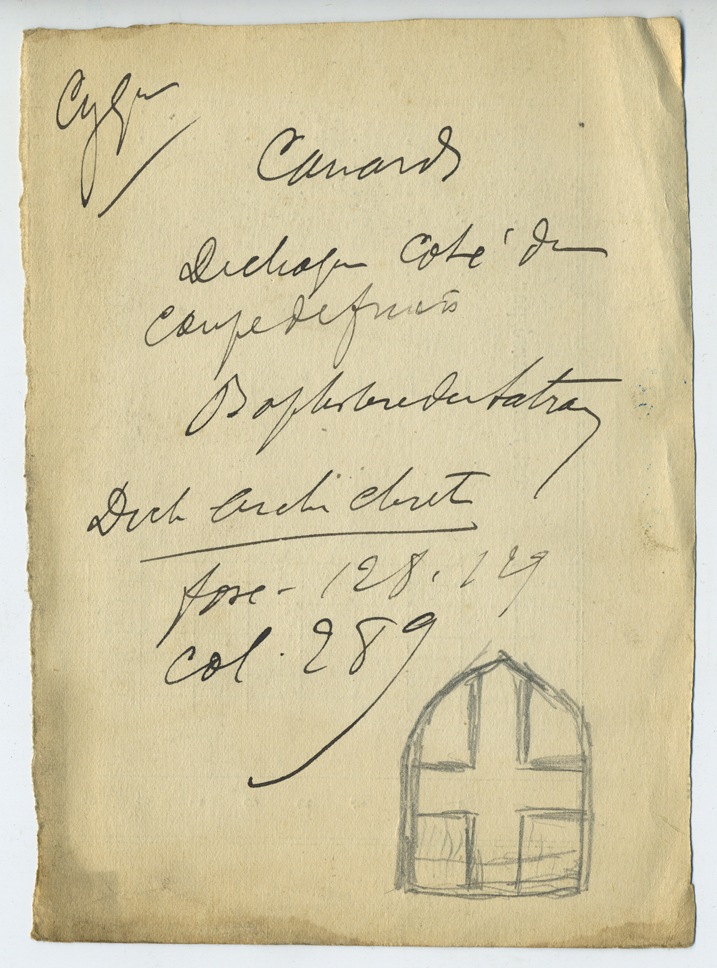 Cygn
Canards
De chaque coté d'un
coupe de fruits
Baptistere du Latran
Dict. Archi chret
fasc - 128. 129
col. 289